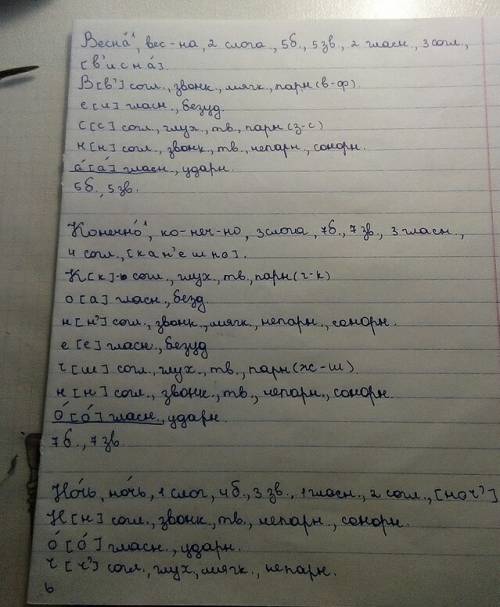 Весна́¹, вес-на, 2 слога, 5б., 5зв., 2 гласн., 3согл.,
[в'исна́].
В[в'] согл., звонк., мягк., парн(в-ф).
е[и] гласн., безуд.
с[с] согл., глух., тв., парн(з-с)
н[н] согл., звонк., тв., непарн., сонорн.
а́[а́] гласн., ударн.
5б., 5зв.
Конечно́¹, ко-неч-но, 3слога, 7б., 7зв., 3гласн.,
4 согл., [кан'ешно].
К[к]-ь согл., глух., тв., парн(г-к)
о[а] гласн., безд.
н[н'] согл., звонк., мягк., непарн., сонорн.
е[е] гласн., безуд
ч[ш] согл., глух., тв., парн(ж-ш)
н[н] согл., звонк., тв., непарн., сонорн.
о́[о́] гласн., ударн.
7б., 7зв
Но́чь, но́чь, 1 слог, 4б., 3зв., 1гласн., 2согл., [ноч']
Н[н] согл., звонк., тв., непарн., сонорн.
о́[о́] гласн., ударн.
ч[ч'] согл., глух., мягк., непарн.
ь